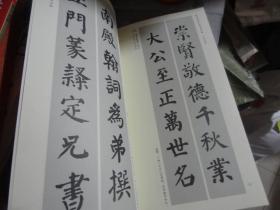 崇賢敬德千秋業
大公至正萬世名
南殿翰詞為弟撰
門篆隸定兄書